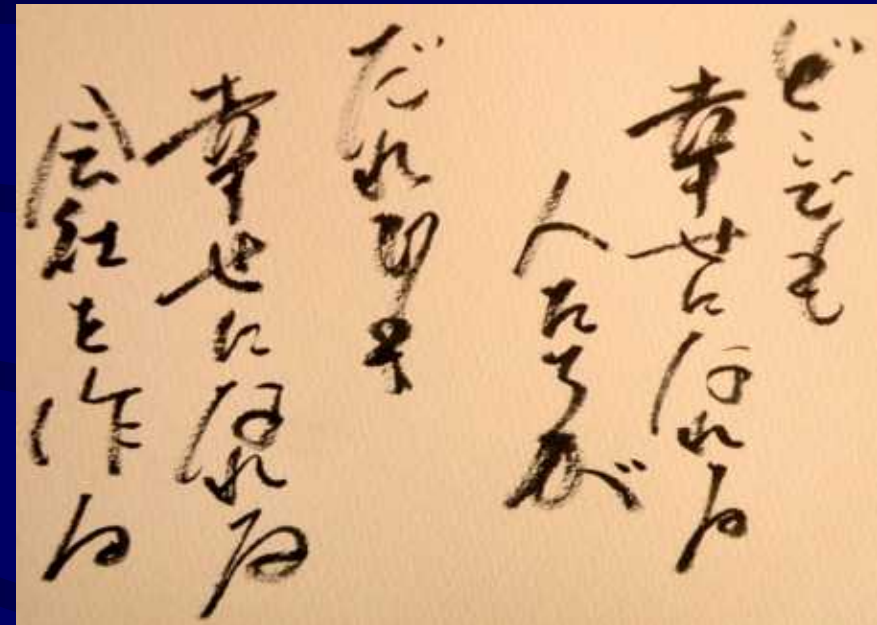 どこでも
幸せになれる
人たちが
だれ
幸せになれる
会社を作る